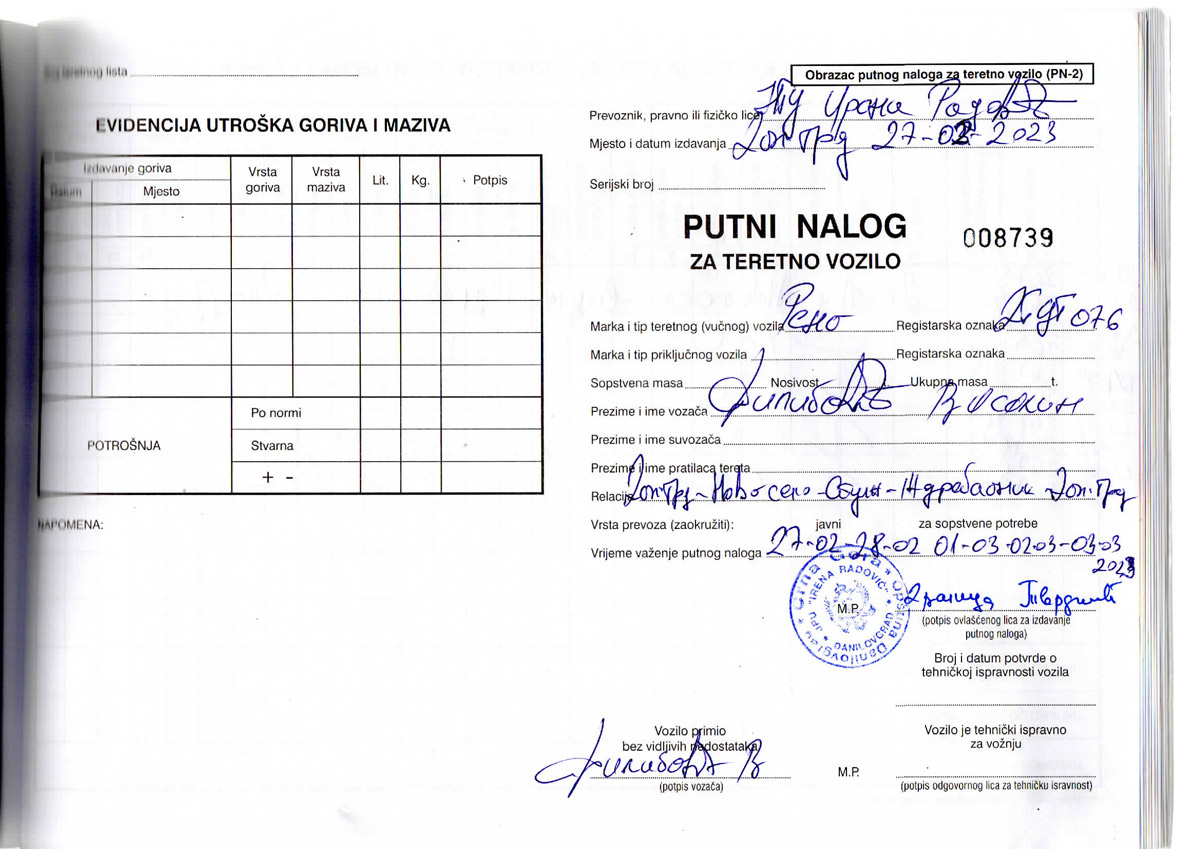 teretnog lista
EVIDENCIJA UTROŠKA GORIVA I MAZIVA
Izdavanje goriva
Datum
Mjesto
Vrsta goriva
Vrsta maziva
Lit.
Kg.
Potpis
Po normi
POTROŠNJA
Stvarna
+ -
NAPOMENA:
Obrazac putnog naloga za teretno vozilo (PN-2)
Prevoznik, pravno ili fizičko lice ЈПУ Ирена Радовић
Mjesto i datum izdavanja 27-02-2023
Serijski broj
PUTNI NALOG
008739
ZA TERETNO VOZILO
Marka i tip teretnog (vučnog) vozila Рено Registarska oznaka 076
Marka i tip priključnog vozila Registarska oznaka
Sopstvena masa Nosivost t. Ukupna masa t.
Prezime i ime vozača Филиповић
Prezime i ime suvozača
Prezime i ime pratilaca tereta
Relacija
Vrsta prevoza (zaokružiti): javni za sopstvene potrebe
Vrijeme važenje putnog naloga 27-02-28-02 01-03-02-03-03-03
2023
Crna Gora * Opština Danilovgrad *
JPU "IRENA RADOVIĆ" * DANILOVGRAD *
M.P.
(potpis ovlašćenog lica za izdavanje
putnog naloga)
Broj i datum potvrde o
tehničkoj ispravnosti vozila
Vozilo primio
bez vidljivih nedostataka
Филиповић В
(potpis vozača)
M.P.
Vozilo je tehnički ispravno
za vožnju
(potpis odgovornog lica za tehničku isravnost)